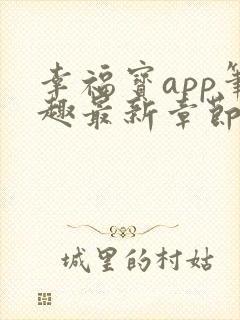 幸福宝app笔
趣最新章节
城里的村姑